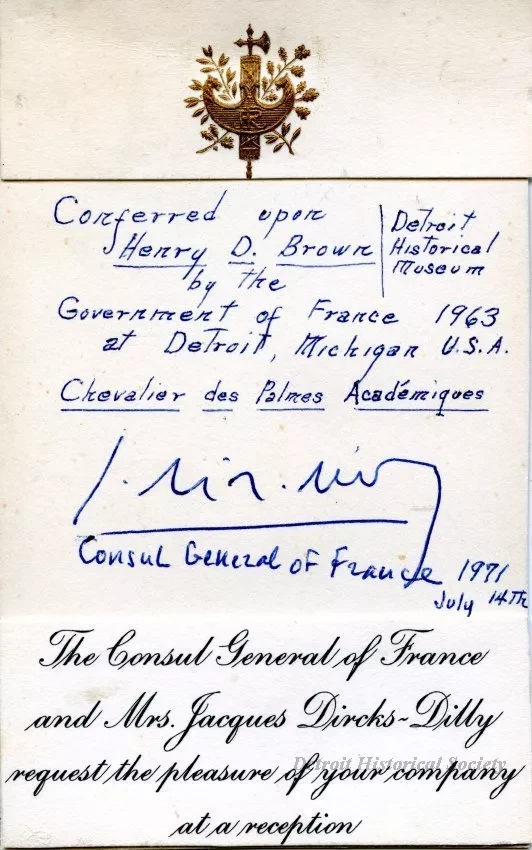 Conferred upon
Henry D. Brown
Detroit
Historical
Museum
by the
Government of France 1963
at Detroit, Michigan U.S.A.
Chevalier des Palmes Académiques
Consul General of France 1971
July 14Th
The Consul General of France
and Mrs. Jacques Dircks-Dilly
Detroit Historical Society
request the pleasure of your company
at a reception